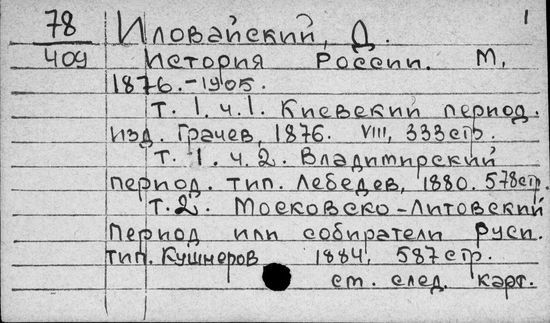 78 Иловайский, Д. 1
409 История России. М,
1876.-1905.
т. 1. ч. 1. Киевский период.
изд. Грачев, 1876. VIII, 333стр.
т. 1. ч. 2. Владимирский
период. тип. Лебедев, 1880. 578стр.
т. 2. Московско-Литовский
период или собиратели Руси.
тип. Кушнеров 1884. 587стр.
ст. след. карт.